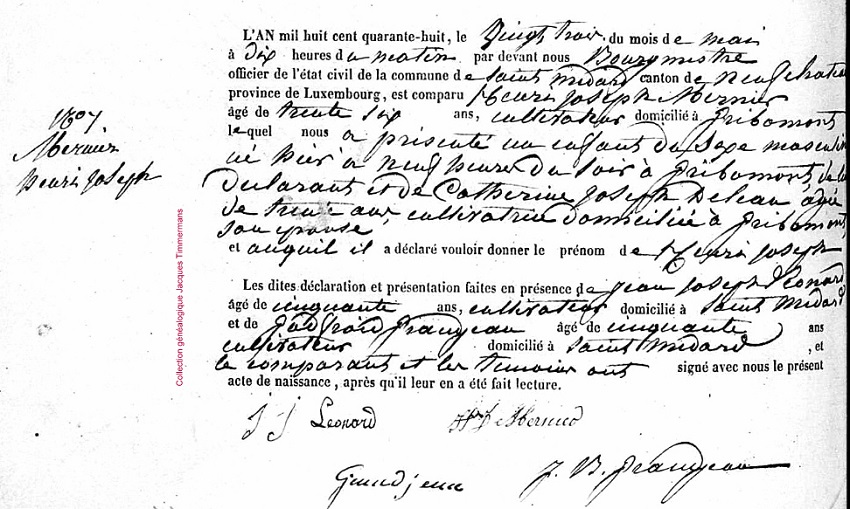 L'AN mil huit cent quarante-huit, le Vingt trois du mois de mai
à Dix heures du matin par devant nous Bourgmestre
officier de l'état civil de la commune de Saint médard canton de Neufchateau
province de Luxembourg, est comparu Henri Joseph Mernier
âgé de trente six ans, cultivateur domicilié à Fribomont
lequel nous a présenté un enfant du Sexe masculin
né hier à neuf heures du soir à Fribomont de lui
Declarant et de Catherine Joseph agée
de trente ans, cultivatrice domiciliée à Fribomont
son épouse,
et auquel il a déclaré vouloir donner le prénom de Henri Joseph
Les dites déclaration et présentation faites en présence de Jean Joseph Léonard
âgé de cinquante ans, cultivateur domicilié à Saint médard
et de Grandjean âgé de cinquante ans
cultivateur domicilié à Saint médard, et
le comparant et les temoins ont signé avec nous le présent
acte de naissance, après qu'il leur en a été fait lecture.
J J Leonard
Grandjean
J. B. Grandjean
Mernier
henri Joseph
Collection généalogique Jacques Timmermans